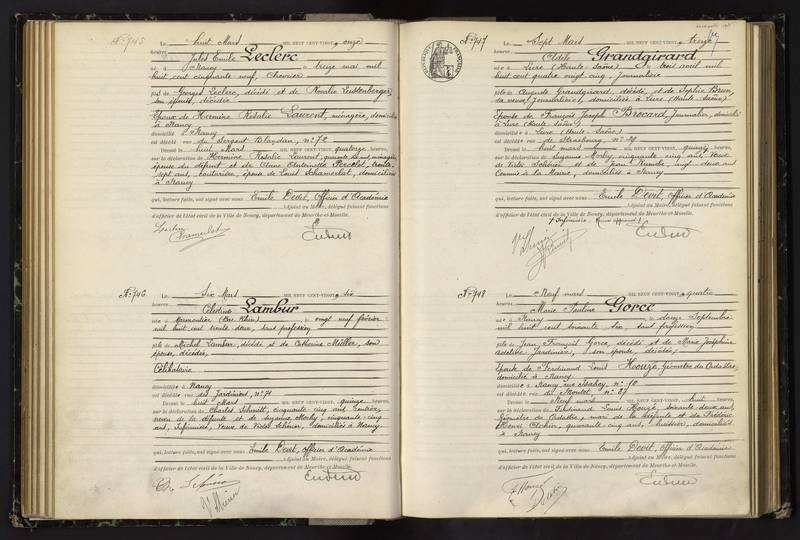 N° 945
Le huit Mars MIL NEUF CENT-VINGT, onze
heures
Jules Emile Leclerc
né à Nancy le treize mai mil
huit cent cinquante neuf, Chevrier
fils de Georges Leclerc, décédé et de Rosalie Leistenberger,
son épouse, décédée
Epoux de Hermine Rosalie Laurent, ménagère, domiciliée
à Nancy
domicilié à Nancy
est décédé rue du Sergent Blandan, n° 72
Dressé le huit Mars quatorze heures
sur la déclaration de Hermine Rosalie Laurent, ménagère
épouse du défunt et de
sept ans, couturière, épouse de Louis domiciliées
à Nancy
qui, lecture faite, ont signé avec nous Emile Devit, Officier d'Académie
Adjoint au Maire, délégué faisant fonctions
d'officier de l'état civil de la Ville de Nancy, département de Meurthe-et-Moselle.
N° 946
Le Six Mars MIL NEUF CENT-VINGT, six
heures
Célestine Lambur
née à Marmoutier (Bas Rhin) le vingt neuf février
mil huit cent trente deux, sans profession
fille de Michel Lambur, décédé et de Catherine Müller, son
épouse, décédée,
Célibataire
domiciliée à Nancy
est décédée rue des Jardiniers, n° 71
Dressé le huit Mars quinze heures
sur la déclaration de Charles Schmitt, cinquante cinq ans
neveu de la défunte et de Suzanne Hocby, cinquante cinq
ans, Infirmière, Veuve de domiciliés à Nancy
qui, lecture faite, ont signé avec nous Emile Devit, Officier d'Académie
Adjoint au Maire, délégué faisant fonctions
d'officier de l'état civil de la Ville de Nancy, département de Meurthe-et-Moselle.
N° 947
Le Sept Mars MIL NEUF CENT-VINGT, treize
heures
Clotilde Grandgirard
née à Lure (Haute Saône) le trois avril mil
huit cent quatre vingt cinq, Journalière
fille de Auguste Grandgirard, décédé, et de Sophie Brun,
sa veuve, Journalière, domiciliée à Lure (Haute Saône)
Epouse de François Joseph Brocard, Journalier, domicilié
à Lure (Haute Saône)
domiciliée à Lure (Haute Saône)
est décédée rue de Strasbourg n°
Dressé le huit mars quinze heures
sur la déclaration de Suzanne Hocby, cinquante cinq ans, Veuve
de et de vingt deux ans
Commis à la Mairie, domiciliés à Nancy
qui, lecture faite, ont signé avec nous Emile Devit, Officier d'Académie
Adjoint au Maire, délégué faisant fonctions
d'officier de l'état civil de la Ville de Nancy, département de Meurthe-et-Moselle.
N° 948
Le Neuf mars MIL NEUF CENT-VINGT, quatre
heures
Marie Pauline Gorce
née à Nancy le douze Septembre
mil huit cent soixante six, sans profession
fille de Jean François Gorce, décédé et de Marie Joséphine
Adélaïde Jardinier, son épouse, décédée,
Epouse de Ferdinand Louis Houzé, Géomètre du Cadastre,
domicilié à Nancy
domiciliée à Nancy, rue Isabey, n° 10
est décédée rue du Montet, n° 27
Dressé le Neuf mars huit heures
sur la déclaration de Ferdinand Louis Houzé, soixante deux ans,
Géomètre du Cadastre, mari de la défunte et de Frédéric
Henri quarante cinq ans, huissier, domiciliés
à Nancy
qui, lecture faite, ont signé avec nous Emile Devit, Officier d'Académie
Adjoint au Maire, délégué faisant fonctions
d'officier de l'état civil de la Ville de Nancy, département de Meurthe-et-Moselle.